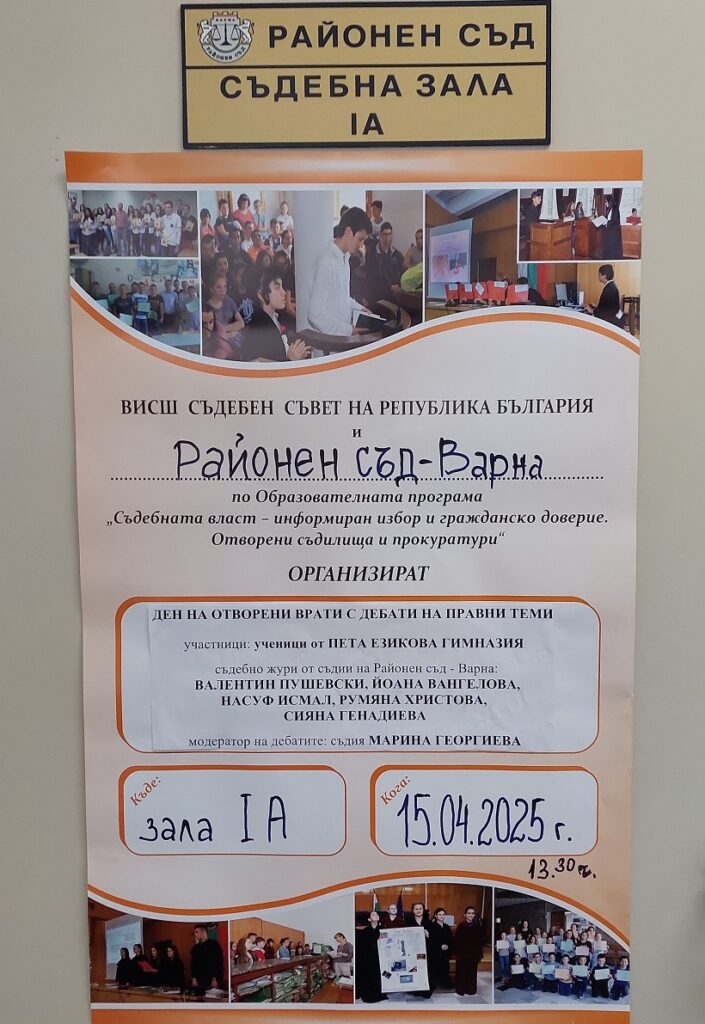 РАЙОНЕН СЪД
СЪДЕБНА ЗАЛА
IA
ВИСШ СЪДЕБЕН СЪВЕТ НА РЕПУБЛИКА БЪЛГАРИЯ
и
Районен съд-Варна
по Образователната програма
„Съдебната власт – информиран избор и гражданско доверие.
Отворени съдилища и прокуратури“
ОРГАНИЗИРАТ
ДЕН НА ОТВОРЕНИ ВРАТИ С ДЕБАТИ НА ПРАВНИ ТЕМИ
участници: ученици от ПЕТА ЕЗИКОВА ГИМНАЗИЯ
съдебно жури от съдии на Районен съд - Варна:
ВАЛЕНТИН ПУШЕВСКИ, ЙОАНА ВАНГЕЛОВА,
НАСУФ ИСМАЛ, РУМЯНА ХРИСТОВА,
СИЯНА ГЕНАДИЕВА
модератор на дебатите: съдия МАРИНА ГЕОРГИЕВА
Къде:
зала I A
Кога:
15.04.2025 г.
13.30 ч.